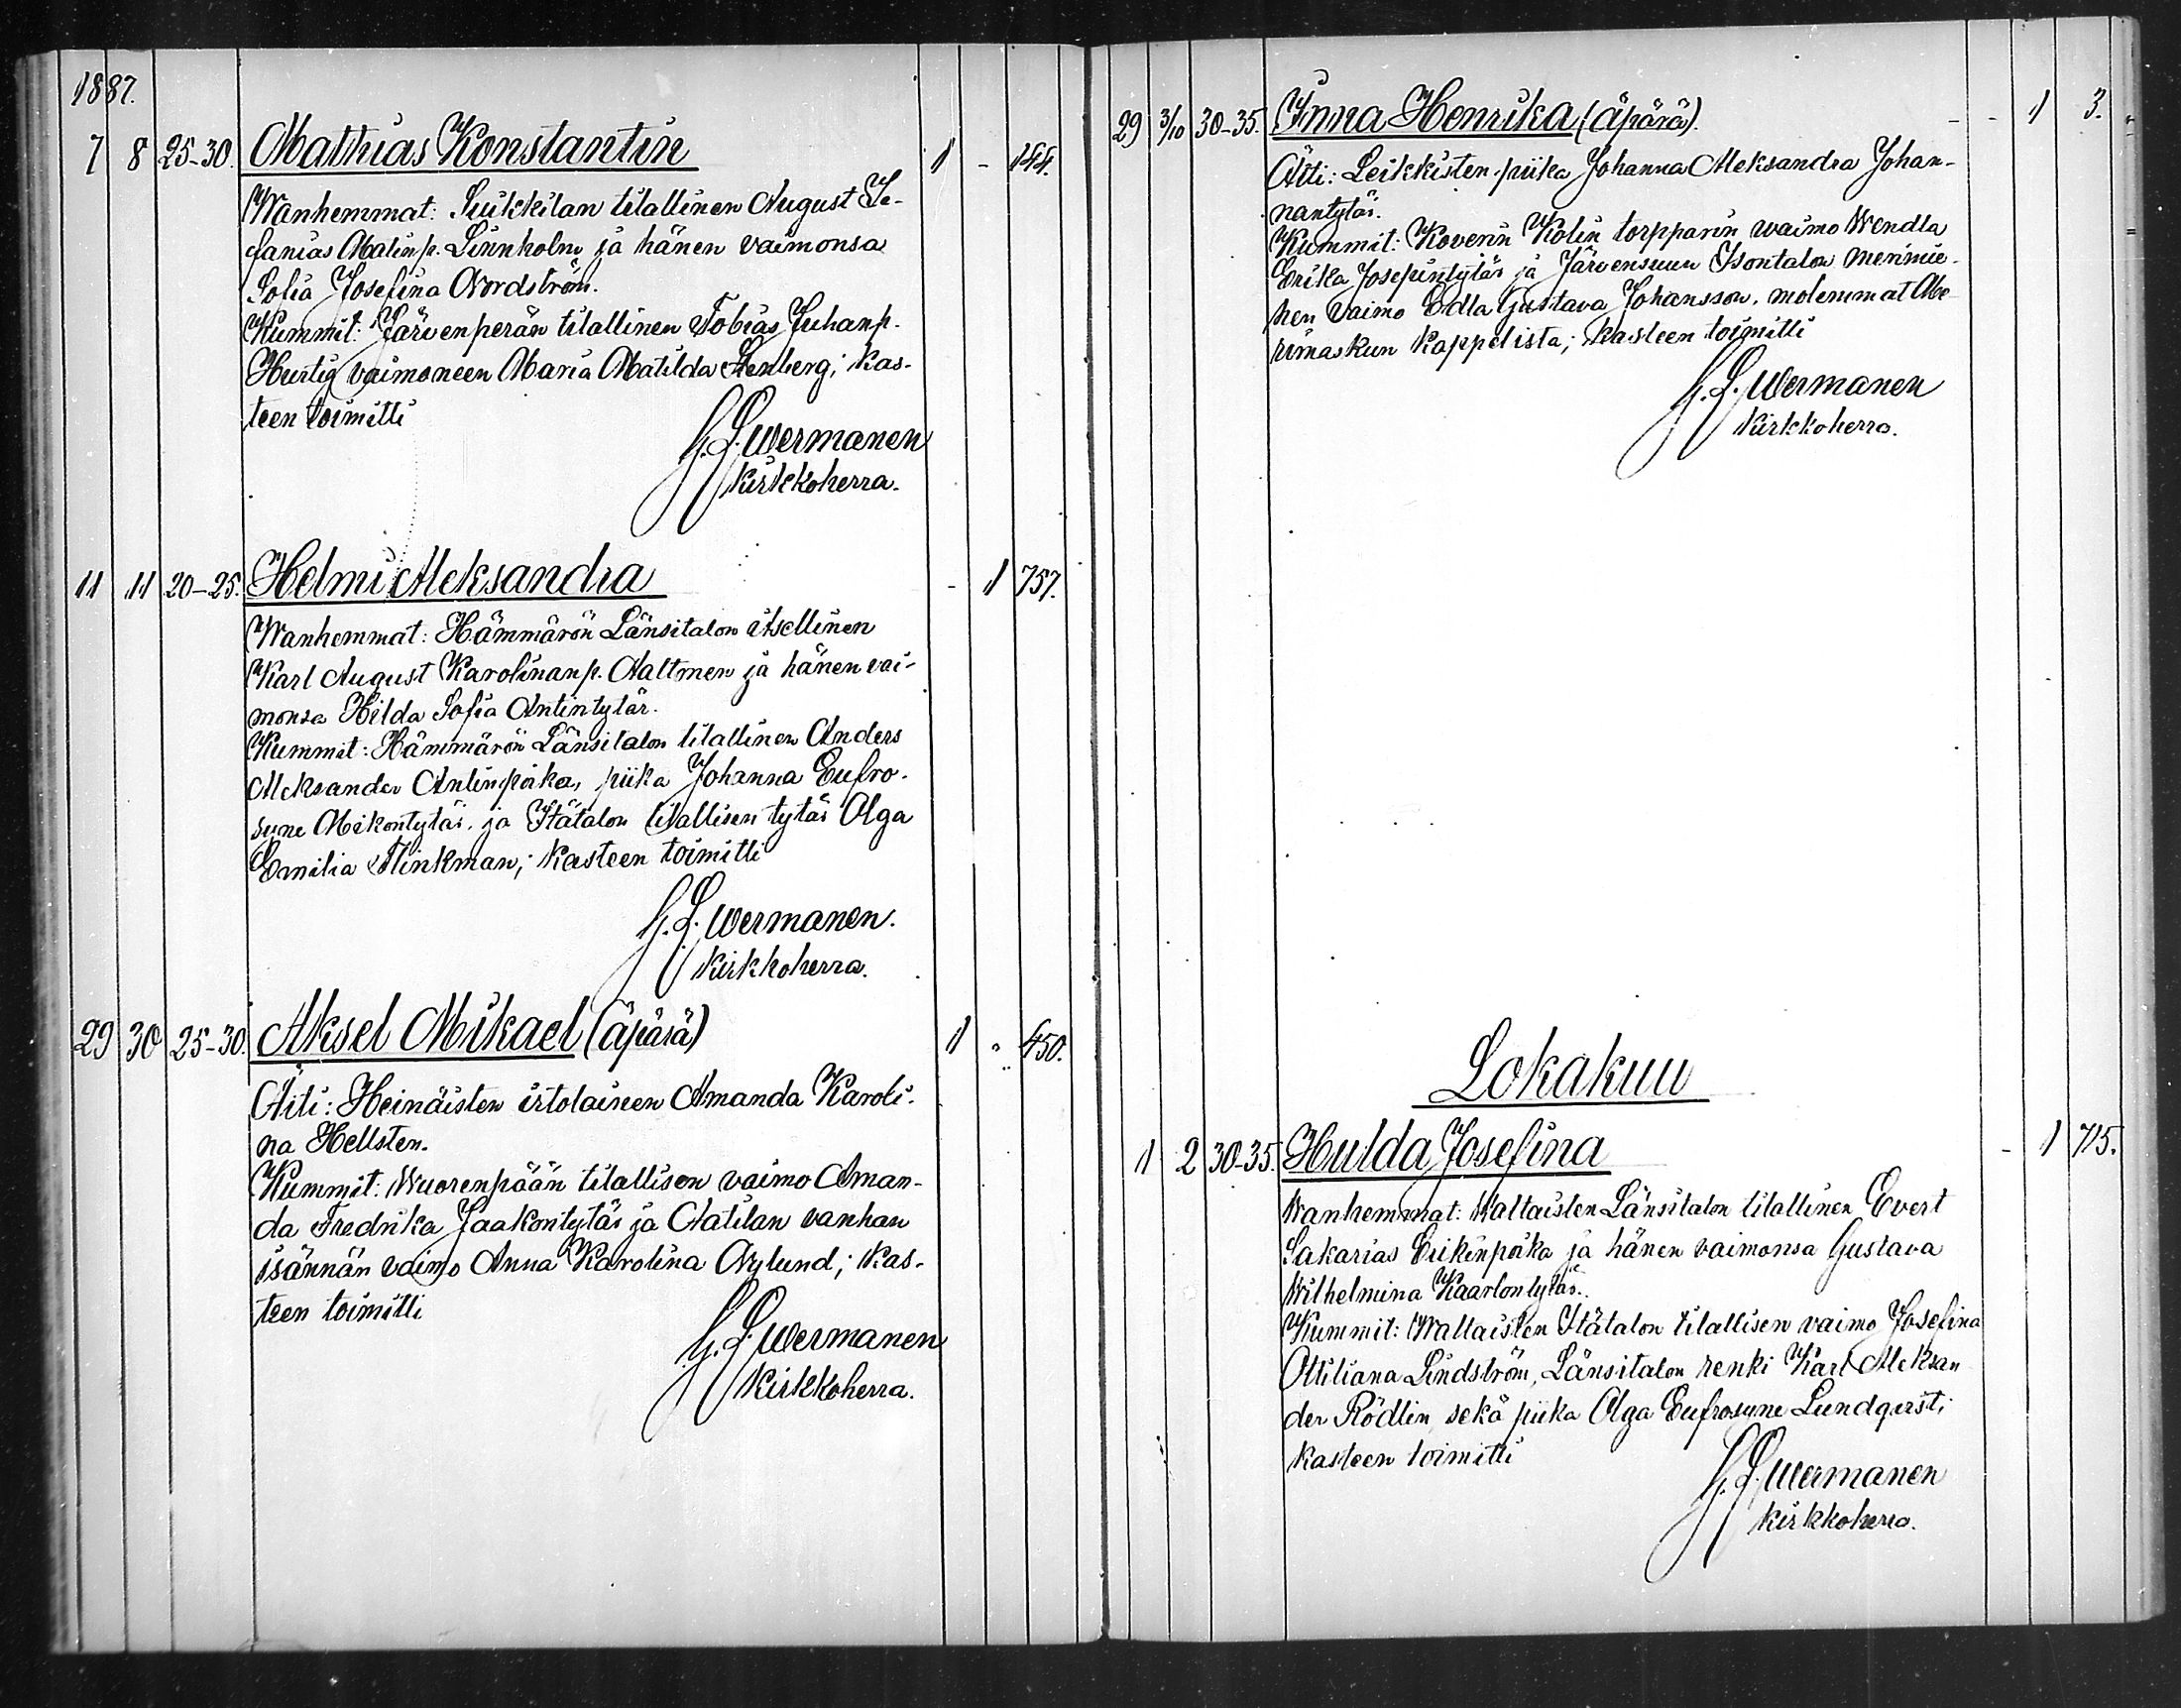 1887.
7 8 25-30. Mathias Konstantin 1 - 144.
Wanhemmat: Suikkilan tilallinen August Se-
fanias Matinp. Linnholm ja hänen vaimonsa
Sofia Josefina Nordström.
Kummit: Järvenperän tilallinen Tobias Juhanp.
Hurtig vaimoneen Maria Matilda Stenberg; kas-
teen toimitti
G. L. Wermanen
Kirkkoherra.
11 11 20-25. Helmi Aleksandra - 1 757.
Wanhemmat: Hämmärön Länsitalon itsellinen
Karl August Karolinanp. Aaltonen ja hänen vai-
monsa Hilda Sofia Antintytär.
Kummit: Hämmärön Länsitalon tilallinen Anders
Aleksander Antinpoika, piika Johanna Eufro-
syne Mikontytär, ja Itätalon tilallisen tytär Olga
Emilia Flinkman; kasteen toimitti
G. L. Wermanen.
Kirkkoherra.
29 30 25-30. Aksel Mikael (äpärä) 1 " 450.
Äiti: Heinäisten irtolainen Amanda Karoli-
na Hellsten.
Kummit: Wuorenpään tilallisen vaimo Aman-
da Fredrika Jaakontytär ja Aatilan vanhan
isännän vaimo Anna Karolina Nylund; kas-
teen toimitti
G. L. Wermanen
Kirkkoherra.
29 3/10 30-35. Inna Henrika (äpärä). - 1 3.
Äiti: Leikkisten piika Johanna Aleksandra Johan-
nantytär.
Kummit: Koverin Kolin torpparin vaimo Wendla
Erika Josepintytär ja Järvensuun Isontalon merimie-
hen vaimo Edla Gustava Johansson, molemmat Me-
rimaskun kappelista; kasteen toimitti
G. L. Wermanen
Kirkkoherra.
Lokakuu
1 2 30-35. Hulda Josefina - 1 715.
Wanhemmat: Waltaisten Länsitalon tilallinen Evert
Sakarias Erikinpoika ja hänen vaimonsa Gustava
Wilhelmina Kaarlontytär.
Kummit: Waltaisten Itätalon tilallisen vaimo Josefina
Ottiliana Lindström, Länsitalon renki Karl Aleksan
der Rödlin, sekä piika Olga Eufrosyne Lundqvist;
kasteen toimitti
G. L. Wermanen
Kirkkoherra.